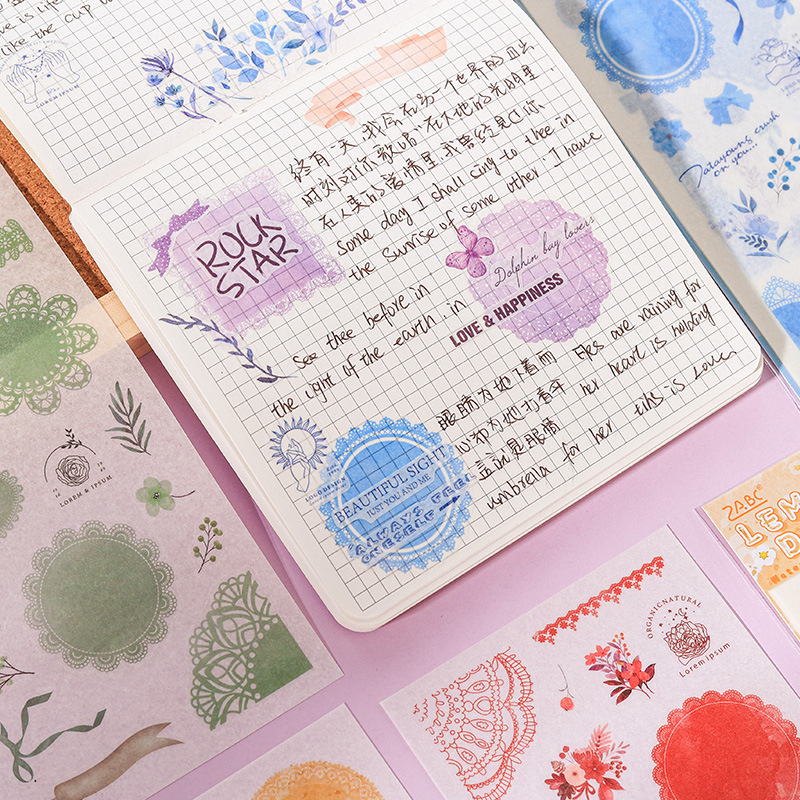 like the cup
LOREM IPSUM
终有一天,我会在另一个世界的日出
时刻对你歌唱:"在大地的光明里,
在人类的爱情里,我曾经见过你.
some day I shall cing to thee in
the sunrise of some other I have
see thee before in
the light of the earth, in
ROCK
STAR
Dolphin bay lovers
LOVE & HAPPINESS
眼睛为她下着雨
心却为她打着伞
这就是爱情
Eyes are raining for
her heart is holding
umbrella for her this is Love
LOGODESIGN
BEAUTIFUL SIGHT
JUST YOU AND ME
ALWAYS FEEL
ONESELF
Datayoung crush
on you...
LOREM & IPSUM
ORGANICNATURAL
Lorem Ipsum
LEM